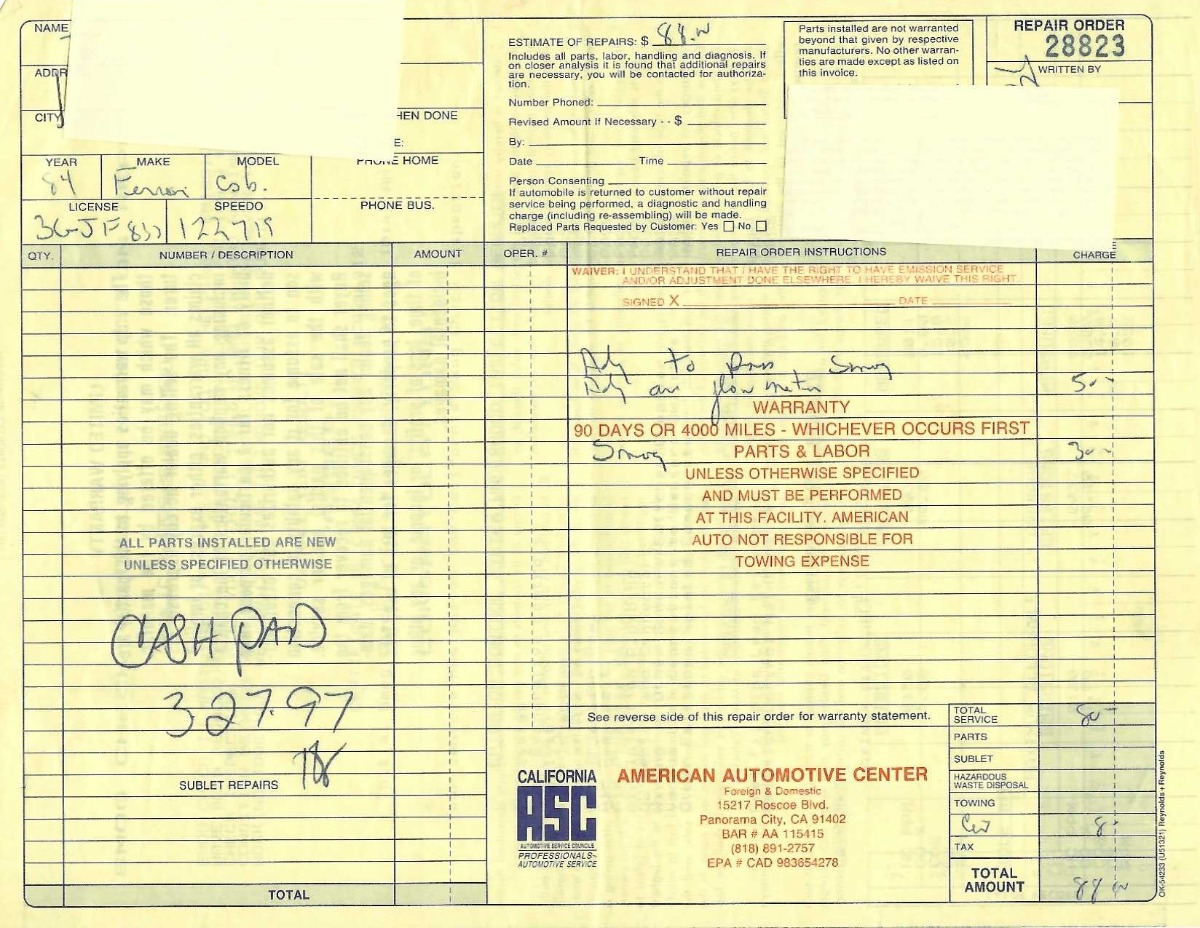 NAME
ADDR
CITY
HEN DONE
E:
YEAR MAKE MODEL PHONE HOME
84 Ferrari Cab.
LICENSE SPEEDO PHONE BUS.
122719
ESTIMATE OF REPAIRS: $ 88.00
Includes all parts, labor, handling and diagnosis. If
on closer analysis it is found that additional repairs
are necessary, you will be contacted for authoriza-
tion.
Number Phoned:
Revised Amount If Necessary - - $
By:
Date Time
Person Consenting
If automobile is returned to customer without repair
service being performed, a diagnostic and handling
charge (including re-assembling) will be made.
Replaced Parts Requested by Customer: Yes No
Parts installed are not warranted
beyond that given by respective
manufacturers. No other warran-
ties are made except as listed on
this invoice.
REPAIR ORDER
28823
WRITTEN BY
QTY. NUMBER / DESCRIPTION AMOUNT OPER. # REPAIR ORDER INSTRUCTIONS CHARGE
WAIVER: I UNDERSTAND THAT I HAVE THE RIGHT TO HAVE EMISSION SERVICE
AND/OR ADJUSTMENT DONE ELSEWHERE. I HEREBY WAIVE THIS RIGHT.
SIGNED X DATE
Adj to pass Smog
Adj air flow meter 50-
WARRANTY
90 DAYS OR 4000 MILES - WHICHEVER OCCURS FIRST
Smog PARTS & LABOR 30-
UNLESS OTHERWISE SPECIFIED
AND MUST BE PERFORMED
AT THIS FACILITY. AMERICAN
AUTO NOT RESPONSIBLE FOR
TOWING EXPENSE
ALL PARTS INSTALLED ARE NEW
UNLESS SPECIFIED OTHERWISE
CASH PAID
327.97
SUBLET REPAIRS
TOTAL
See reverse side of this repair order for warranty statement.
CALIFORNIA
ASC
AUTOMOTIVE SERVICE COUNCILS
PROFESSIONALS-
AUTOMOTIVE SERVICE
AMERICAN AUTOMOTIVE CENTER
Foreign & Domestic
15217 Roscoe Blvd.
Panorama City, CA 91402
BAR # AA 115415
(818) 891-2757
EPA # CAD 983654278
TOTAL SERVICE 80-
PARTS
SUBLET
HAZARDOUS WASTE DISPOSAL
TOWING
Cert 8-
TAX
TOTAL AMOUNT 88 00
OK-54233 (U51321) Reynolds + Reynolds